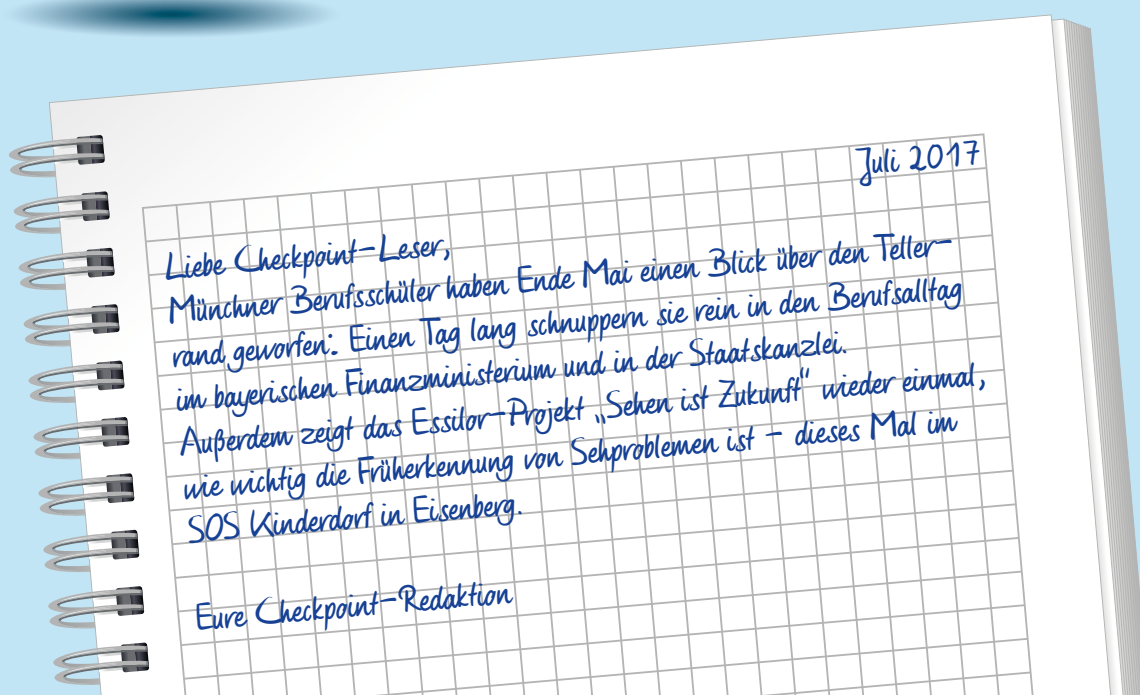 Juli 2017
Liebe Checkpoint-Leser,
Münchner Berufsschüler haben Ende Mai einen Blick über den Teller-
rand geworfen: Einen Tag lang schnuppern sie rein in den Berufsalltag
im bayerischen Finanzministerium und in der Staatskanzlei.
Außerdem zeigt das Essilor-Projekt „Sehen ist Zukunft“ wieder einmal,
wie wichtig die Früherkennung von Sehproblemen ist – dieses Mal im
SOS Kinderdorf in Eisenberg.
Eure Checkpoint-Redaktion